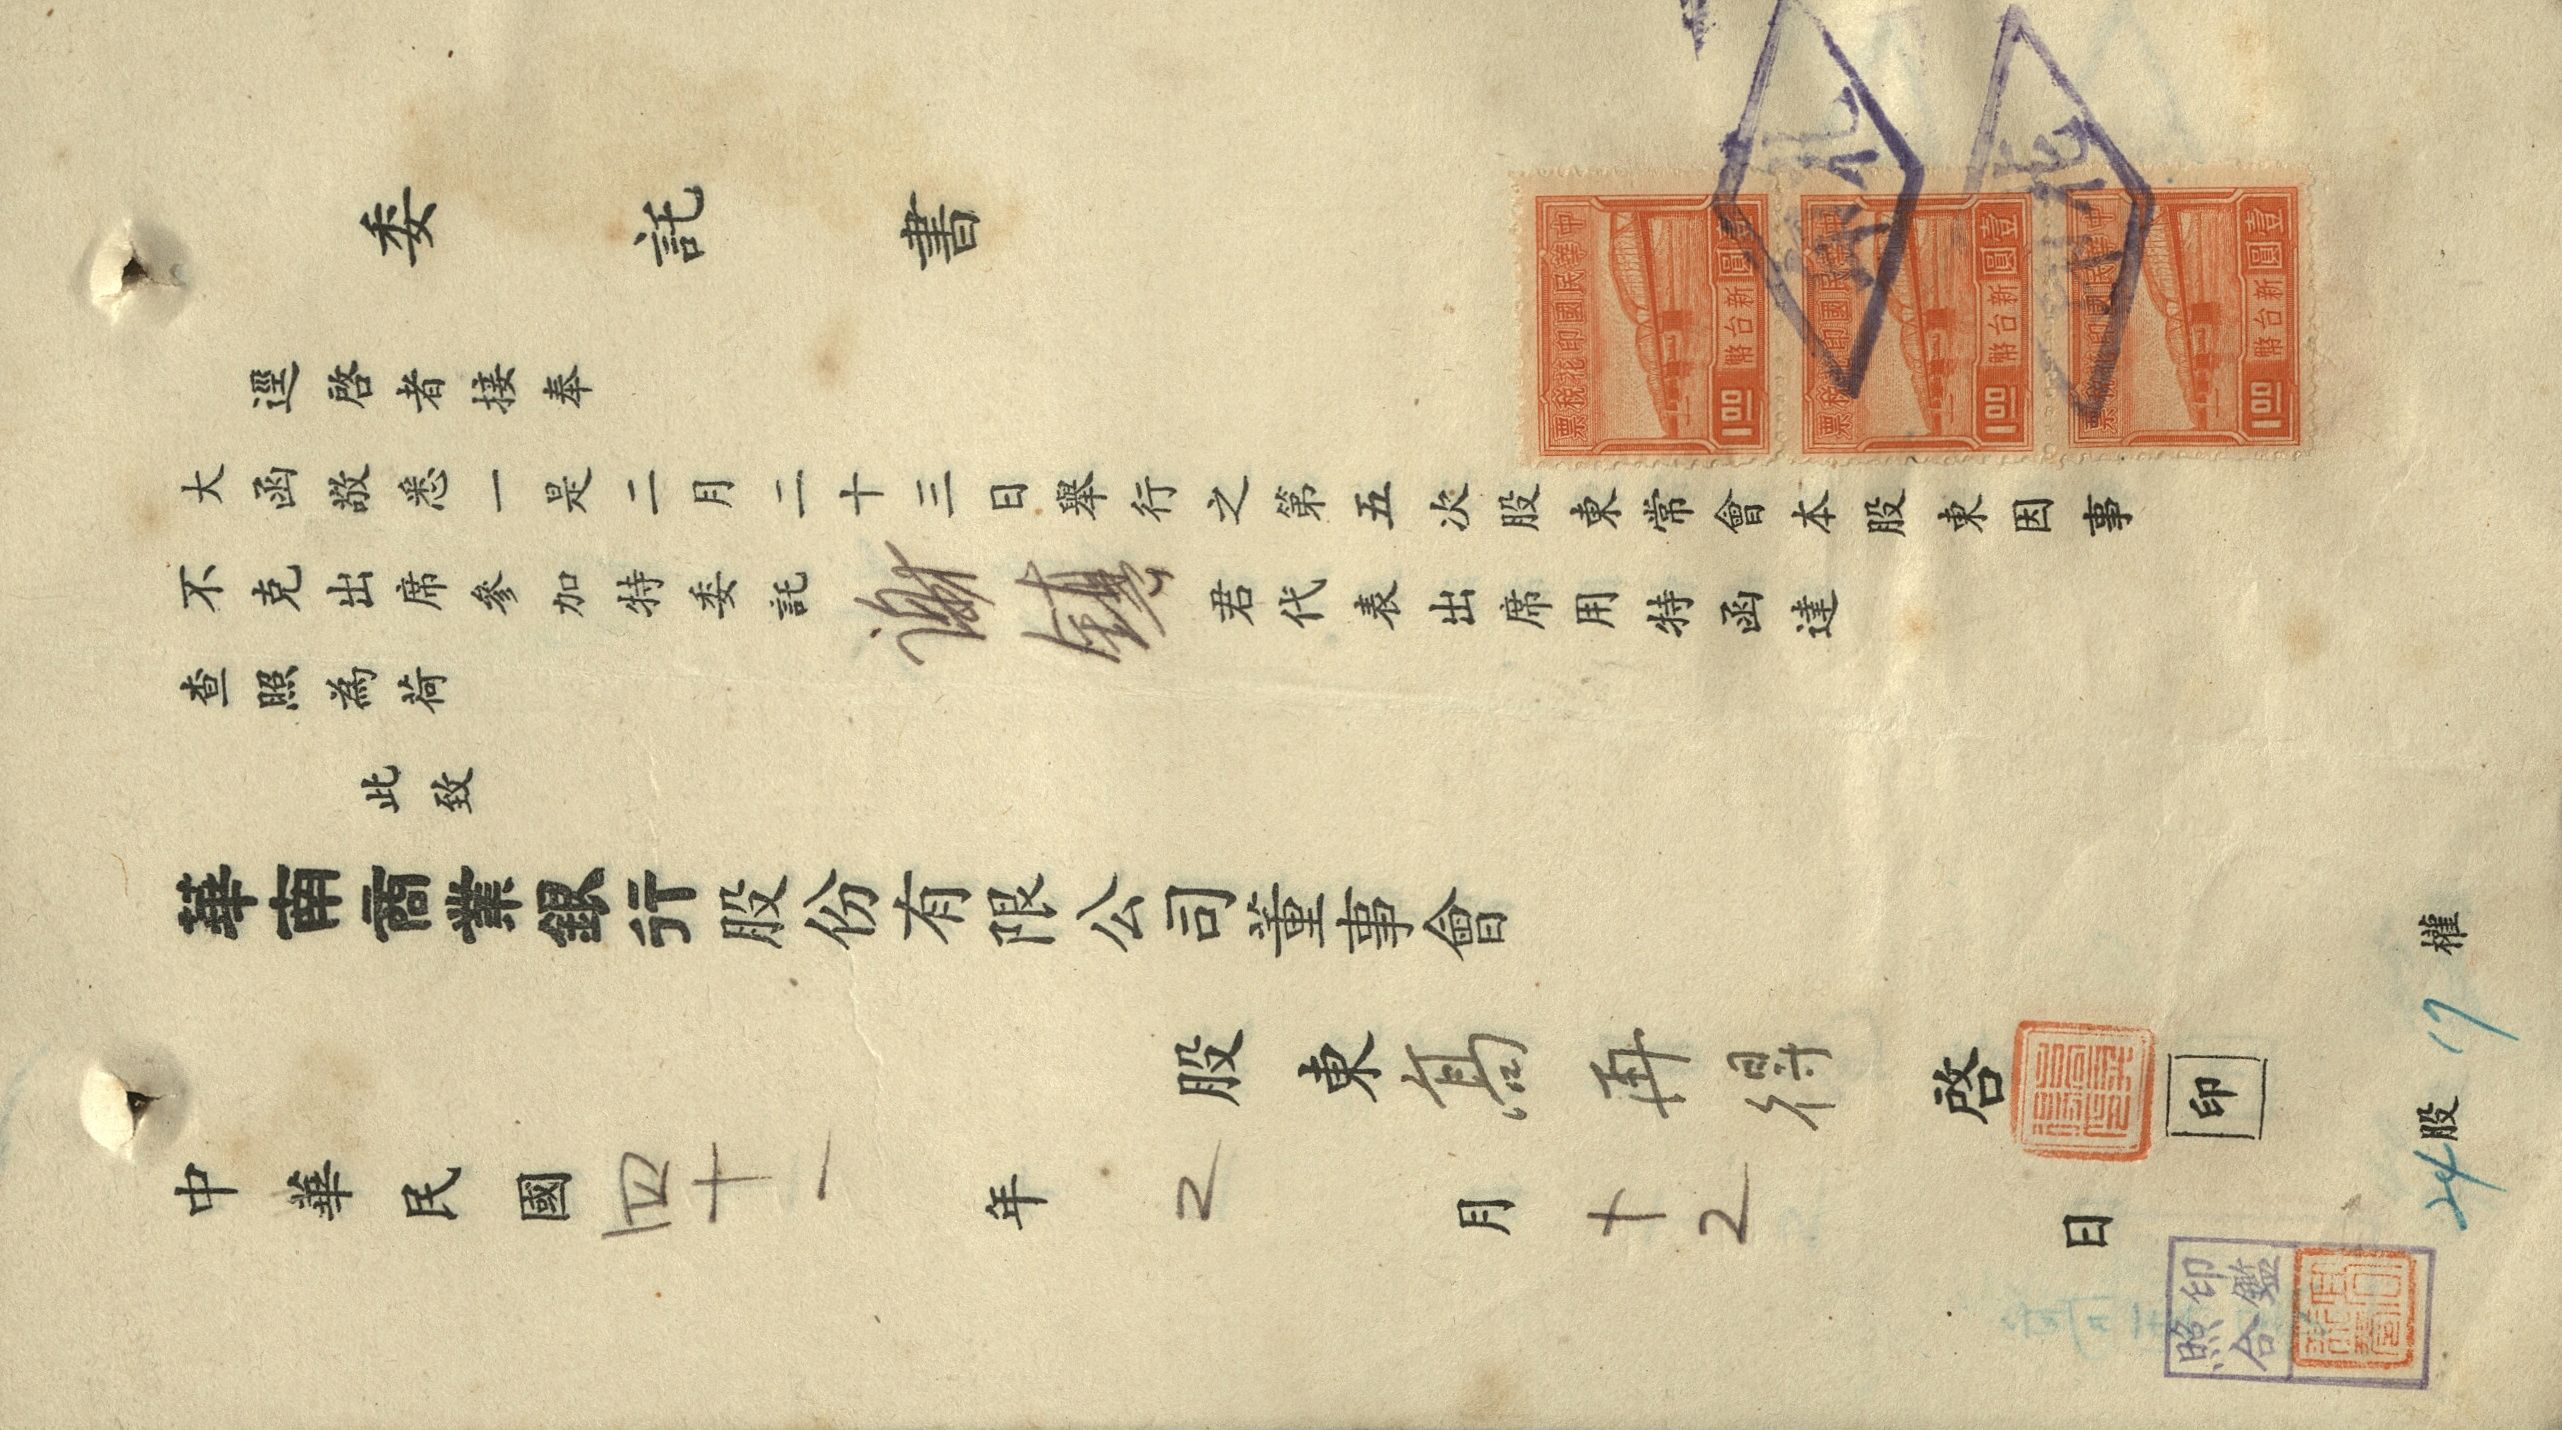 委託書
逕啓者接奉
大函敬悉一是二月二十三日舉行之第五次股東常會本股東因事
不克出席參加特委託謝鐵君代表出席用特函達
查照為荷
此致
華南商業銀行股份有限公司董事會
股東 再得 啓 印
中華民國四十一年2月十2日
24股 17權
印鑑
照合
中華民國印花稅票
壹圓
新台幣
1.00
中華民國印花稅票
壹圓
新台幣
1.00
中華民國印花稅票
壹圓
新台幣
1.00